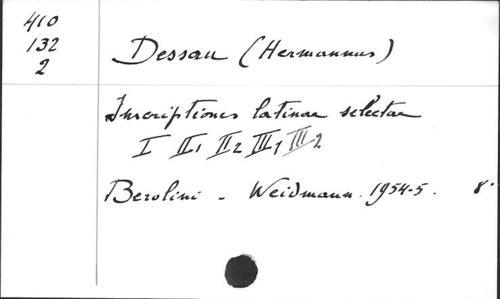 410
132
2
Dessau (Hermannus)
Inscriptiones latinae selectae
I II1 II2 III1 III2
Berolini - Weidmann. 1954-5. 8°